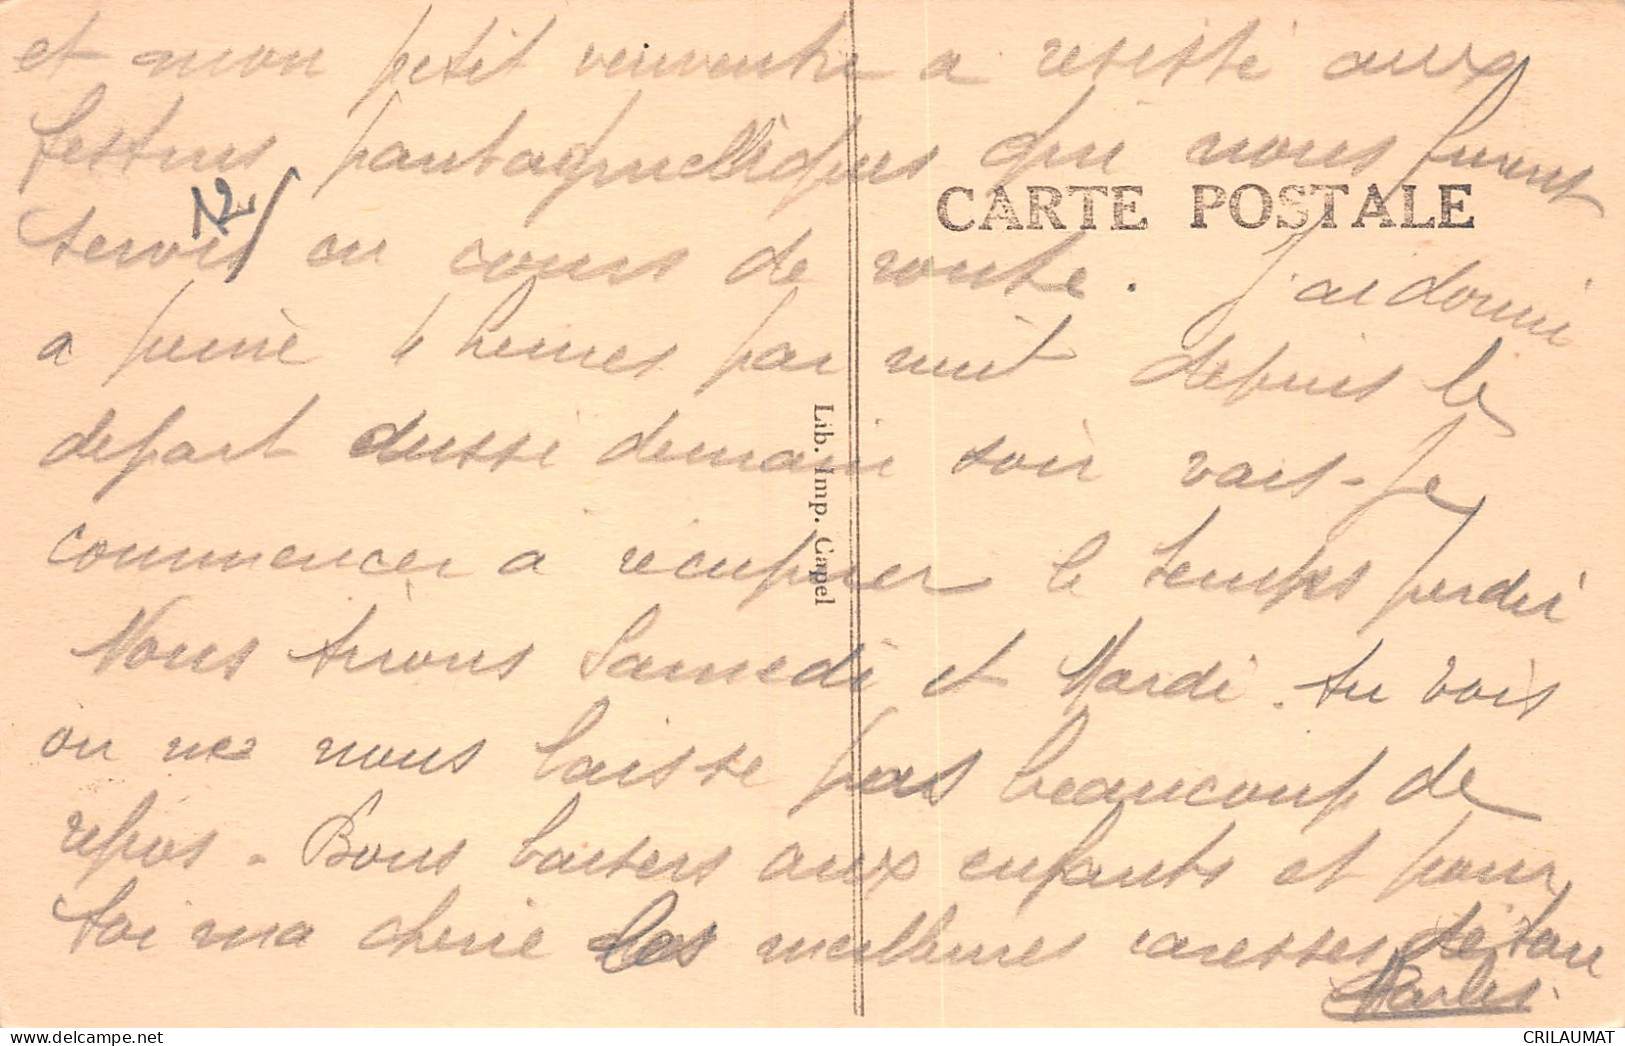 et mon petit veinventre a resisté aux
festins pantagruelliques qui nous furent
N2
CARTE POSTALE
servis au cours de route. J'ai dormi
a peine 4 heures par nuit depuis le
depart aussi demain soir vais-je
commencer a recuperer le temps perdu
Nous tirons Samedi et Mardi. tu vois
on ne nous laisse pas beaucoup de
repos. Bons baisers aux enfants et pour
toi ma cherie les meilleures caresses de ton
Charles
Lib. Imp. Capel
CRILAUMAT